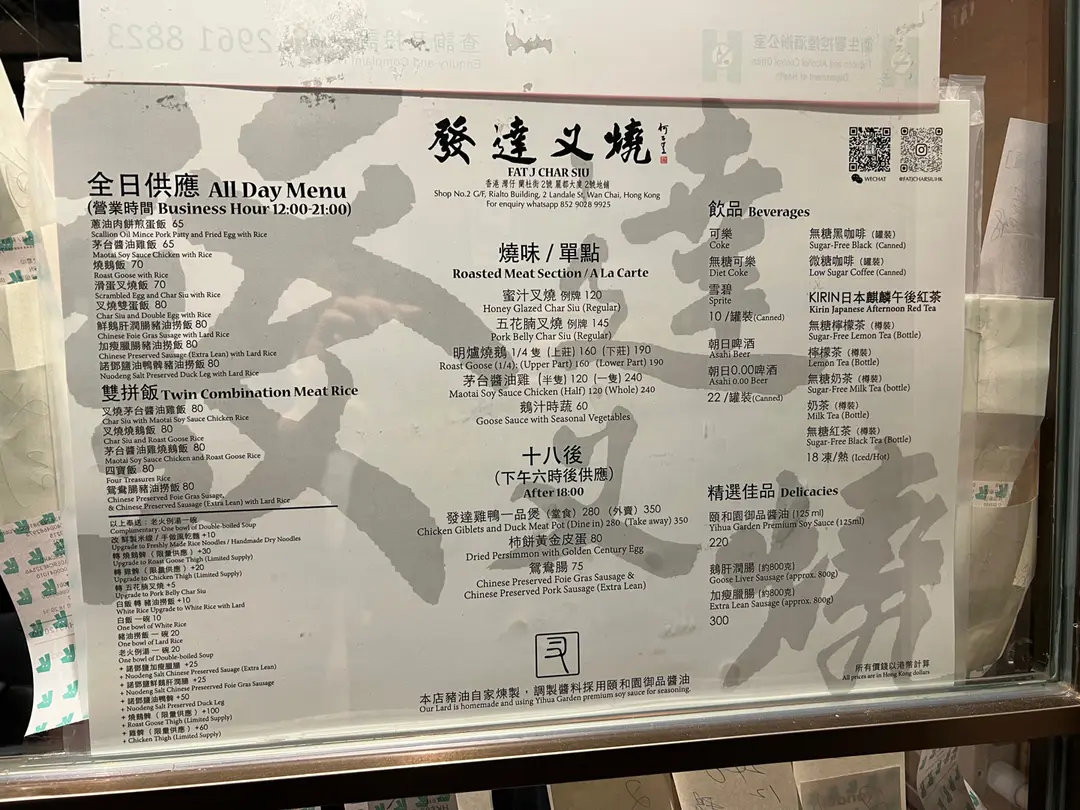 發達叉燒
FAT J CHAR SIU
香港 灣仔 蘭杜街2號 麗都大廈2號地鋪
Shop No.2 G/F, Rialto Building, 2 Landale St, Wan Chai, Hong Kong
For enquiry whatsapp 852 9028 9925
WECHAT
@FATJCHARSIUHK
全日供應 All Day Menu
(營業時間 Business Hour 12:00-21:00)
蔥油肉餅煎蛋飯 65
Scallion Oil Mince Pork Patty and Fried Egg with Rice
茅台醬油雞飯 65
Maotai Soy Sauce Chicken with Rice
燒鵝飯 70
Roast Goose with Rice
滑蛋叉燒飯 80
Scrambled Egg and Char Siu with Rice
叉燒雙蛋飯 80
Char Siu and Double Egg with Rice
鮮鵝肝潤腸豬油撈飯 80
Chinese Foie Gras Susage with Lard Rice
加瘦臘腸豬油撈飯 80
Chinese Preserved Sausage (Extra Lean) with Lard Rice
諾鄧鹽油鴨髀豬油撈飯 80
Nuodeng Salt Preserved Duck Leg with Lard Rice
雙拼飯 Twin Combination Meat Rice
叉燒茅台醬油雞飯 80
Char Siu with Maotai Soy Sauce Chicken Rice
叉燒燒鵝飯 80
Char Siu and Roast Goose Rice
茅台醬油雞燒鵝飯 80
Maotai Soy Sauce Chicken and Roast Goose Rice
四寶飯 80
Four Treasures Rice
鴛鴦腸豬油撈飯 80
Chinese Preserved Foie Gras Susage,
& Chinese Preserved Sausage (Extra Lean) with Lard Rice
以上奉送：老火例湯一碗
Complimentary: One bowl of Double-boiled Soup
改 鮮製米線 / 手做風乾麵 +10
Upgrade to Freshly Made Rice Noodles / Handmade Dry Noodles
轉 燒鵝髀（限量供應）+30
Upgrade to Roast Goose Thigh (Limited Supply)
轉 雞髀（限量供應）+20
Upgrade to Chicken Thigh (Limited Supply)
轉 五花腩叉燒 +5
Upgrade to Pork Belly Char Siu
白飯 轉 豬油撈飯 +10
White Rice Upgrade to White Rice with Lard
白飯 一碗 10
One bowl of White Rice
豬油撈飯 一碗 20
One bowl of Lard Rice
老火例湯 一碗 20
One bowl of Double-boiled Soup
+ 諾鄧鹽加瘦臘腸 +25
+ Nuodeng Salt Chinese Preserved Sauage (Extra Lean)
+ 諾鄧鹽鮮鵝肝潤腸 +25
+ Nuodeng Salt Chinese Preserved Foie Gras Sausage
+ 諾鄧鹽油鴨髀 +50
+ Nuodeng Salt Preserved Duck Leg
+ 燒鵝髀（限量供應）+100
+ Roast Goose Thigh (Limited Supply)
+ 雞髀（限量供應）+60
+ Chicken Thigh (Limited Supply)
燒味 / 單點
Roasted Meat Section / A La Carte
蜜汁叉燒 例牌 120
Honey Glazed Char Siu (Regular)
五花腩叉燒 例牌 145
Pork Belly Char Siu (Regular)
明爐燒鵝 1/4 隻（上莊）160（下莊）190
Roast Goose (1/4): (Upper Part) 160 (Lower Part) 190
茅台醬油雞（半隻）120（一隻）240
Maotai Soy Sauce Chicken (Half) 120 (Whole) 240
鵝汁時蔬 60
Goose Sauce with Seasonal Vegetables
十八後
(下午六時後供應)
After 18:00
發達雞鴨一品煲（堂食）280（外賣）350
Chicken Giblets and Duck Meat Pot (Dine in) 280 (Take away) 350
柿餅黃金皮蛋 80
Dried Persimmon with Golden Century Egg
鴛鴦腸 75
Chinese Preserved Foie Gras Sausage &
Chinese Preserved Pork Sausage (Extra Lean)
本店豬油自家煉製，調製醬料採用頤和園御品醬油
Our Lard is homemade and using Yihua Garden premium soy sauce for seasoning.
飲品 Beverages
可樂
Coke
無糖可樂
Diet Coke
雪碧
Sprite
10 /罐裝(Canned)
朝日啤酒
Asahi Beer
朝日0.00啤酒
Asahi 0.00 Beer
22 /罐裝(Canned)
無糖黑咖啡（罐裝）
Sugar-Free Black (Canned)
微糖咖啡（罐裝）
Low Sugar Coffee (Canned)
KIRIN日本麒麟午後紅茶
Kirin Japanese Afternoon Red Tea
無糖檸檬茶（樽裝）
Sugar-Free Lemon Tea (Bottle)
檸檬茶（樽裝）
Lemon Tea (Bottle)
無糖奶茶（樽裝）
Sugar-Free Milk Tea (bottle)
奶茶（樽裝）
Milk Tea (Bottle)
無糖紅茶（樽裝）
Sugar-Free Black Tea (Bottle)
18 凍/熱 (Iced/Hot)
精選佳品 Delicacies
頤和園御品醬油 (125 ml)
Yihua Garden Premium Soy Sauce (125ml)
220
鵝肝潤腸 (約800克)
Goose Liver Sausage (approx. 800g)
加瘦臘腸 (約800克)
Extra Lean Sausage (approx. 800g)
300
所有價錢以港幣計算
All prices are in Hong Kong dollars